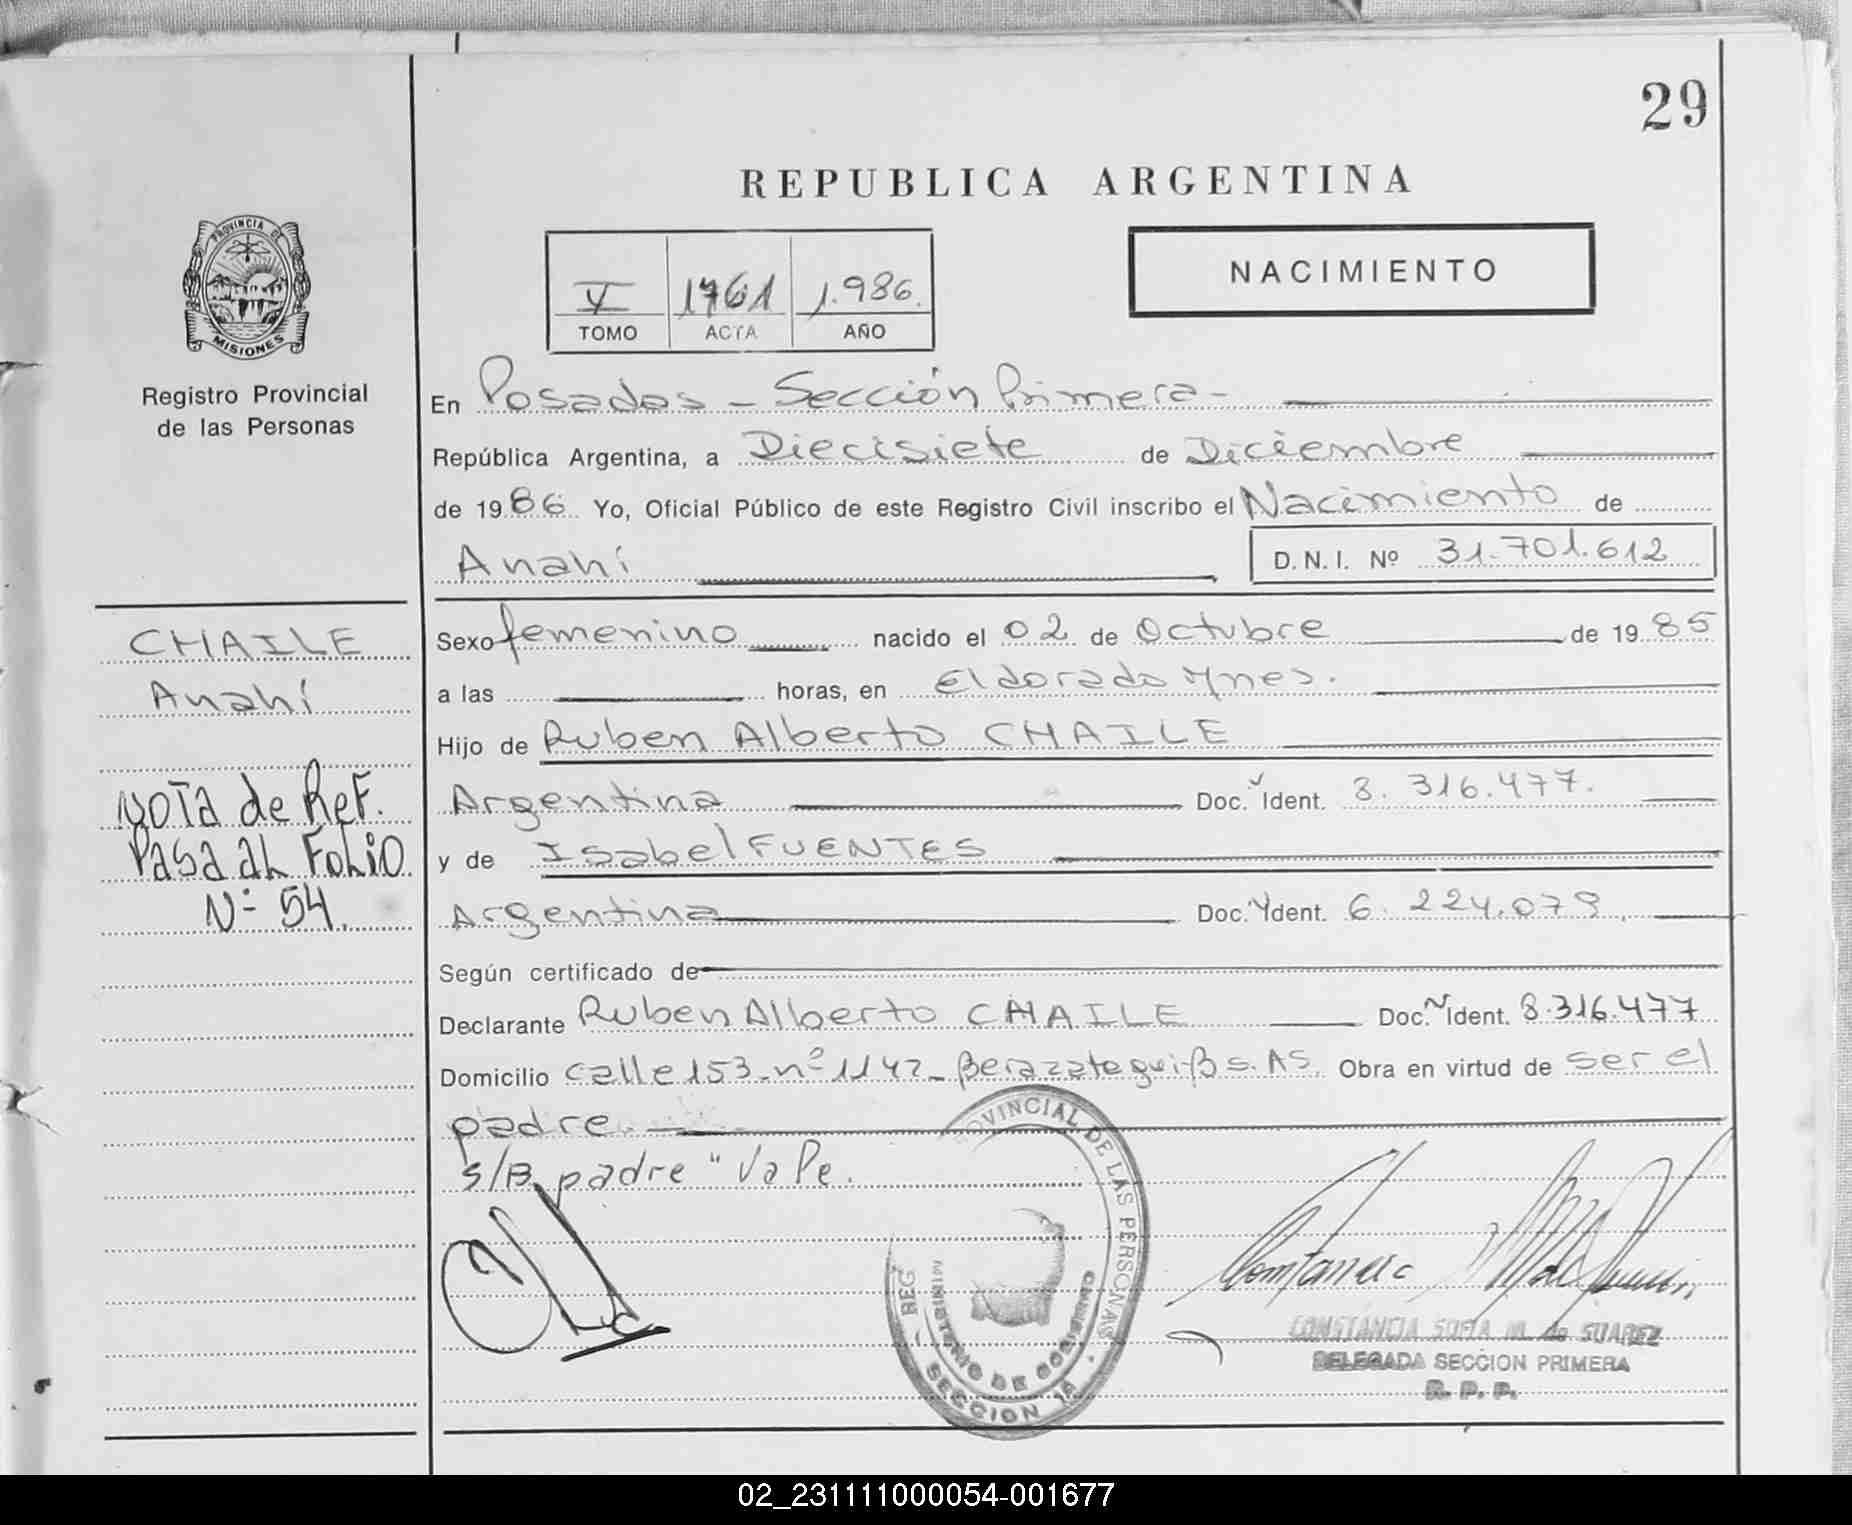 29
REPUBLICA ARGENTINA
PROVINCIA DE
MISIONES
Registro Provincial
de las Personas
V 1761 1.986.
TOMO ACTA AÑO
NACIMIENTO
En Posadas - Sección Primera -
República Argentina, a Diecisiete de Diciembre
de 1986. Yo, Oficial Público de este Registro Civil inscribo el Nacimiento de
Anahí D. N. I. Nº 31.701.612
CHAILE
Anahí
NOTA de ReF.
Pasa al Folio
Nº 54.
Sexo femenino nacido el 02 de Octubre de 1985
a las horas, en Eldorado Mnes.
Hijo de Ruben Alberto CHAILE
Argentina Doc. Ident. 8.316.477.
y de Isabel FUENTES
Argentina Doc. Ydent. 6.224.079.
Según certificado de
Declarante Ruben Alberto CHAILE Doc. Ident. 8.316.477
Domicilio calle 153 - nº 1147 - Berazategui Bs. AS. Obra en virtud de ser el
padre.
s/B padre " Vale.
REG PROVINCIAL DE LAS PERSONAS
MINISTERIO DE GOBIERNO
SECCION 1A
CONSTANCIA SOFIA M. de SUAREZ
DELEGADA SECCION PRIMERA
R. P. P.
02_231111000054-001677